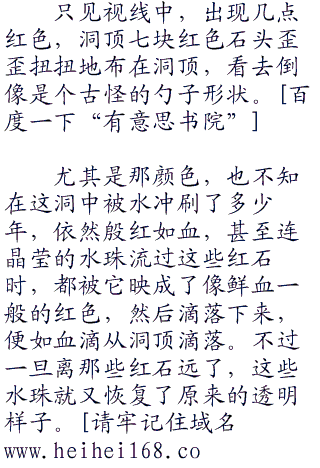 只见视线中，出现几点
红色，洞顶七块红色石头歪
歪扭扭地布在洞顶，看去倒
像是个古怪的勺子形状。[百
度一下“有意思书院”]
尤其是那颜色，也不知
在这洞中被水冲刷了多少
年，依然殷红如血，甚至连
晶莹的水珠流过这些红石
时，都被它映成了像鲜血一
般的红色，然后滴落下来，
便如血滴从洞顶滴落。不过
一旦离那些红石远了，这些
水珠就又恢复了原来的透明
样子。[请牢记住域名
www.heihei168.co